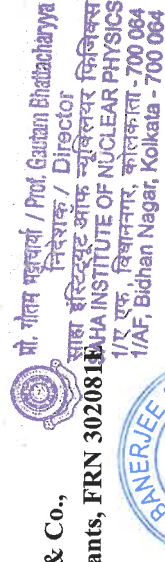 & Co.,
ants, FRN 302081E
प्रो. गौतम भट्टाचार्या / Prof. Gautam Bhattacharyya
निदेशक / Director
साहा इंस्टिट्यूट ऑफ न्यूक्लियर फिजिक्स
SAHA INSTITUTE OF NUCLEAR PHYSICS
1/ए एफ, विधाननगर, कोलकाता - 700 064
1/AF, Bidhan Nagar, Kolkata - 700 064
BANERJEE